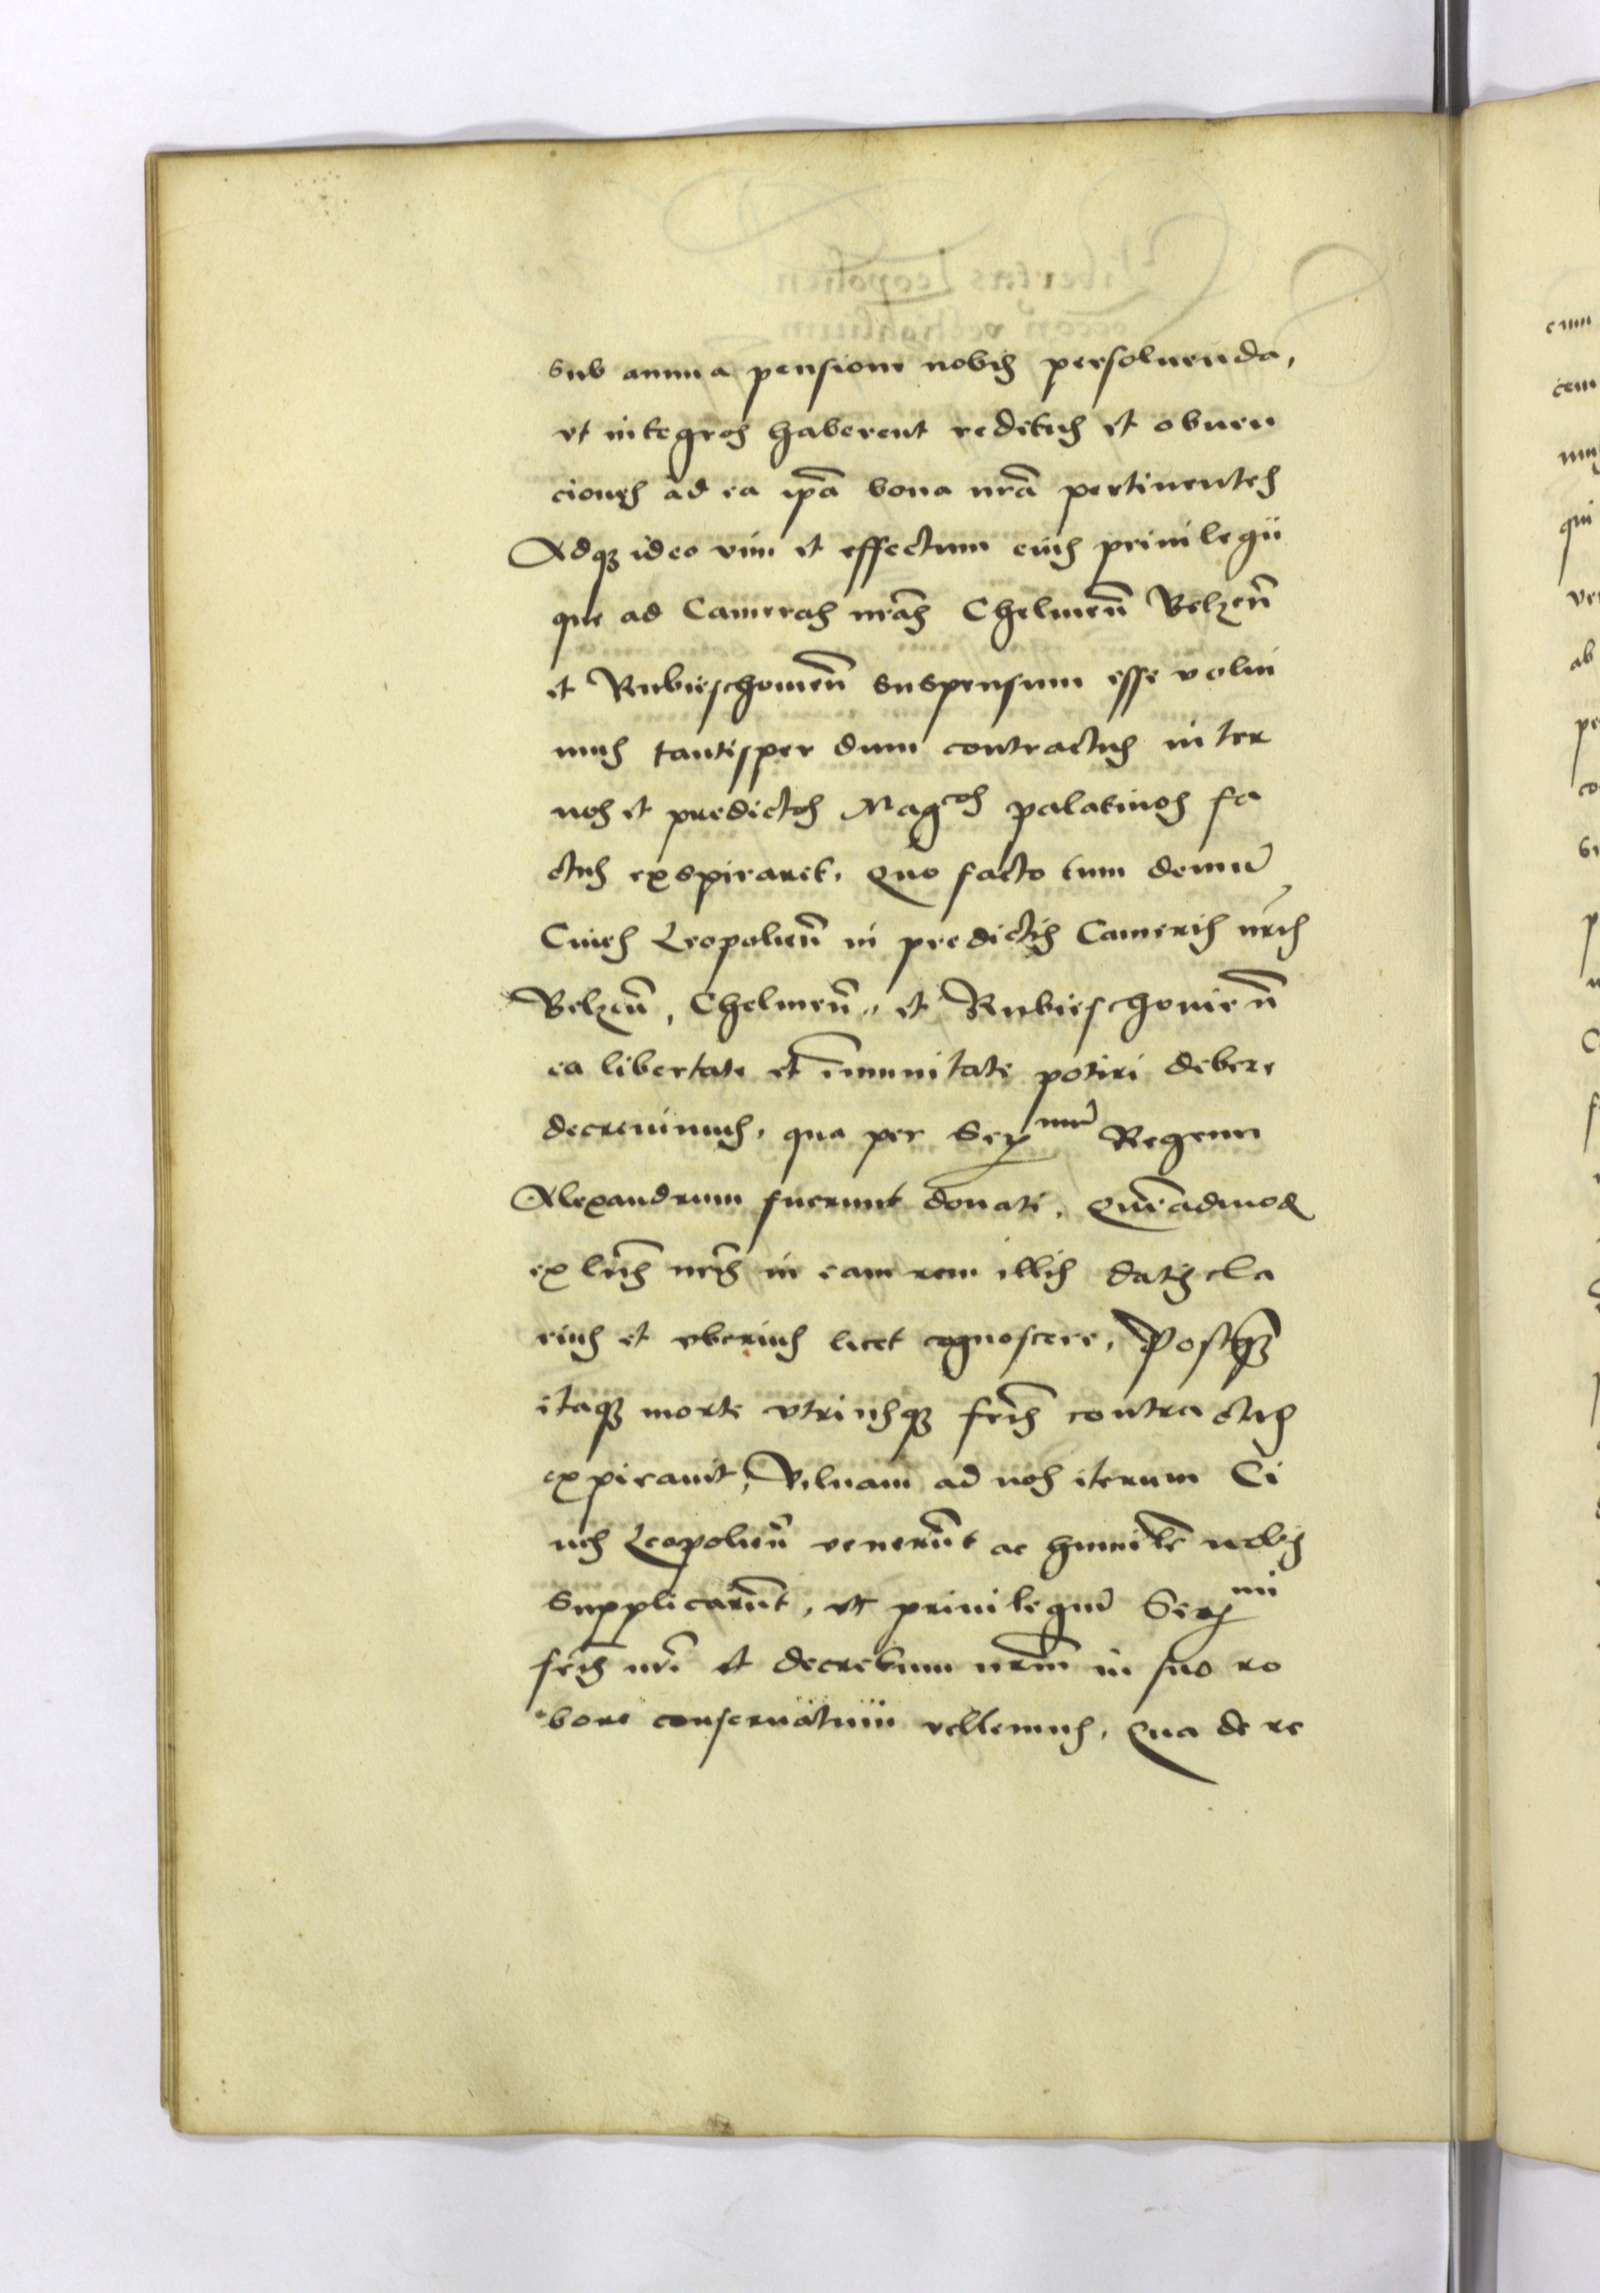 sub annua pensione nobis persoluenda,
vt integros haberent reditus et obuen
ciones ad ea ipa bona nra pertinentes
Adq ideo vim et effectum eius priuilegii
que ad Cameras nras Chelmen Belzen
et Rubieschouien suspensum esse volui
mus tantisper dum contractus inter
nos et predictos Magcos palatinos fa
ctus exspiraret. Quo facto tum demu
Ciues Leopolien in predictis Cameris nris
Belzen, Chelmen, et Rubieschouien
ea libertate et imunitate potiri debere
decreuimus, qua per Sermu Regem
Alexandrum fuerunt donati, Queadmod
ex lris nris in eam rem illis datis cla
rius et vberius licet cognoscere, Postq
itaq morte vtriusq fris contractus
expirauit, Vilnam ad nos iterum Ci
ues Leopolien venerut ac humilr nobis
supplicarut, vt priuilegiu Sermi
fris nri et decretum nrm in suo ro
bore conseruatum vellemus, Qua de re